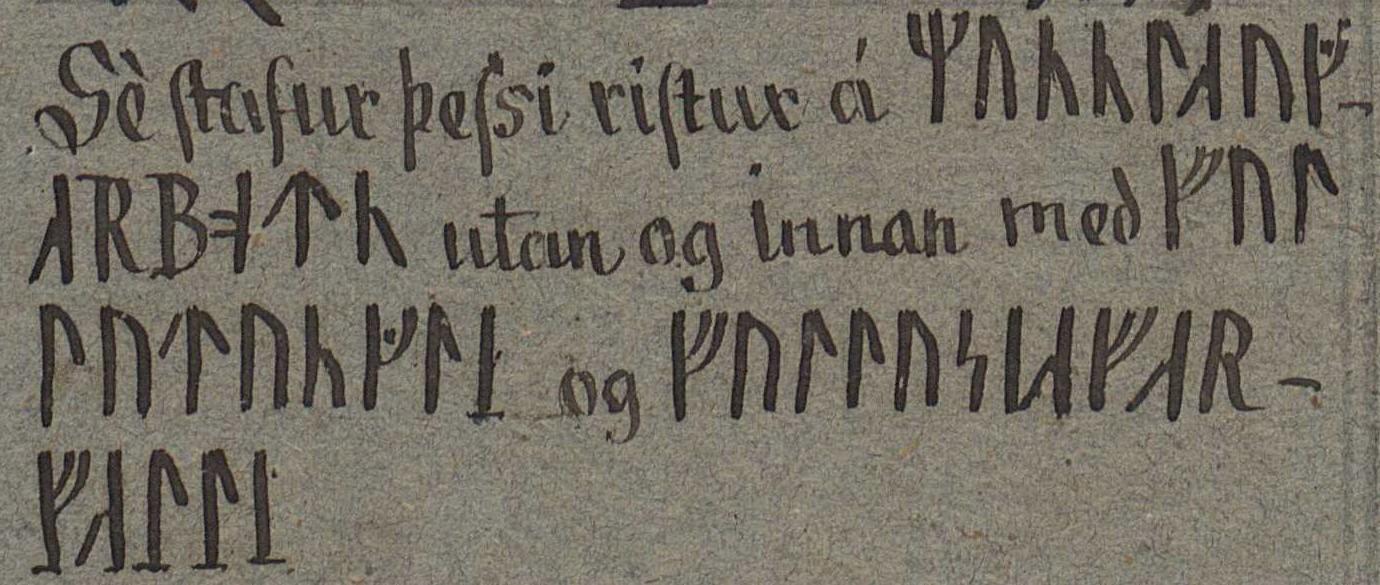 Sè ſtafur þeſsi riſtur á ᛘᚢᚿᚿᛚᛆᚢᚵ-
ᛆᚱᛒᚮᛏᚿ utan og innan með ᚠᚢᛚ
ᛚᚢᛏᚢᚿᚵᛚᛁ og ᚠᚢᛚᛚᚢᛋᛁᛆᚠᛆᚱ-
ᚠᛆᛚᛚᛁ